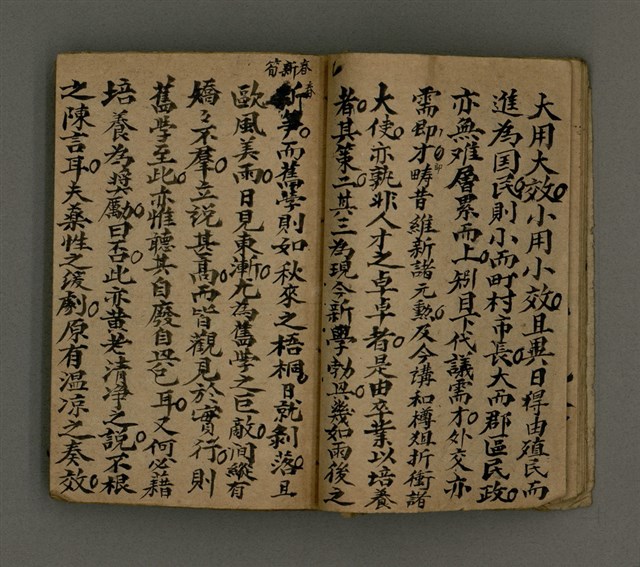 大用大效小用小效且異日得由殖民而
進為国民則小而町村市長大而郡區民政
亦無难層累而上矧目下代議需才外交亦
需即才疇昔維新諸元勲及今講和樽俎折衝諸
大使亦孰非人才之卓卓者是由卒業以培養
者其策二其三為現今新學勃興幾如雨後之
春新筍
春
新筝而舊學則如秋來之梧桐日就剝落且
歐風美雨日見東漸尤為舊學之巨敵間縱有
矯々不羣立說甚高而皆觀見於實行則
舊學至此亦惟聽其自廢自興耳又何必藉
培養為獎勵曰否此亦黃老清净之說不根
之陳言耳夫藥性之缓劇原有温凉之奏效